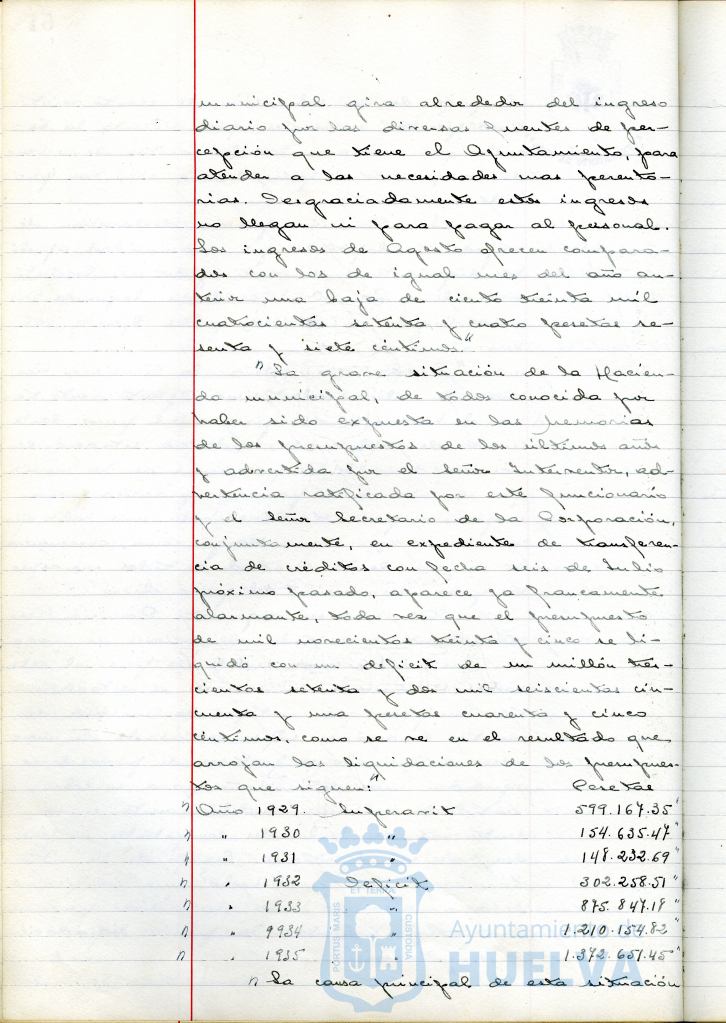 municipal gira alrededor del ingreso
diario por las diversas fuentes de per-
cepción que tiene el Ayuntamiento, para
atender a las necesidades mas perento-
rias. Desgraciadamente estos ingresos
no llegan ni para pagar al personal.
Los ingresos de Agosto ofrecen compara-
dos con los de igual mes del año an-
terior una baja de ciento treinta mil
cuatrocientas setenta y cuatro pesetas se-
senta y siete céntimos."
"La grave situación de la Hacien-
da municipal, de todos conocida por
haber sido expuesta en las memorias
de los presupuestos de los últimos años
y advertida por el señor Interventor, ad-
vertencia ratificada por este funcionario
y el señor Secretario de la Corporación,
conjuntamente, en expediente de transferen-
cia de créditos con fecha seis de Julio
próximo pasado, aparece ya francamente
alarmante, toda vez que el presupuesto
de mil novecientos treinta y cinco se li-
quidó con un deficit de un millón tres-
cientas setenta y dos mil seiscientas cin-
cuenta y una pesetas cuarenta y cinco
céntimos, como se ve en el resultado que
arrojan las liquidaciones de los presupues-
tos que siguen:" Pesetas
" Año 1929. Superavit 599.167.35"
" " 1930 " 154.635.47"
" " 1931 " 148.232.69"
" " 1932 Deficit 302.258.51"
" " 1933 " 875.847.18"
" " 9934 " 1.210.154.82"
" " 1935 " 1.372.651.45"
" La causa principal de esta situación
PORTUS MARIS ET TERRAE CUSTODIA
Ayuntamiento de
HUELVA